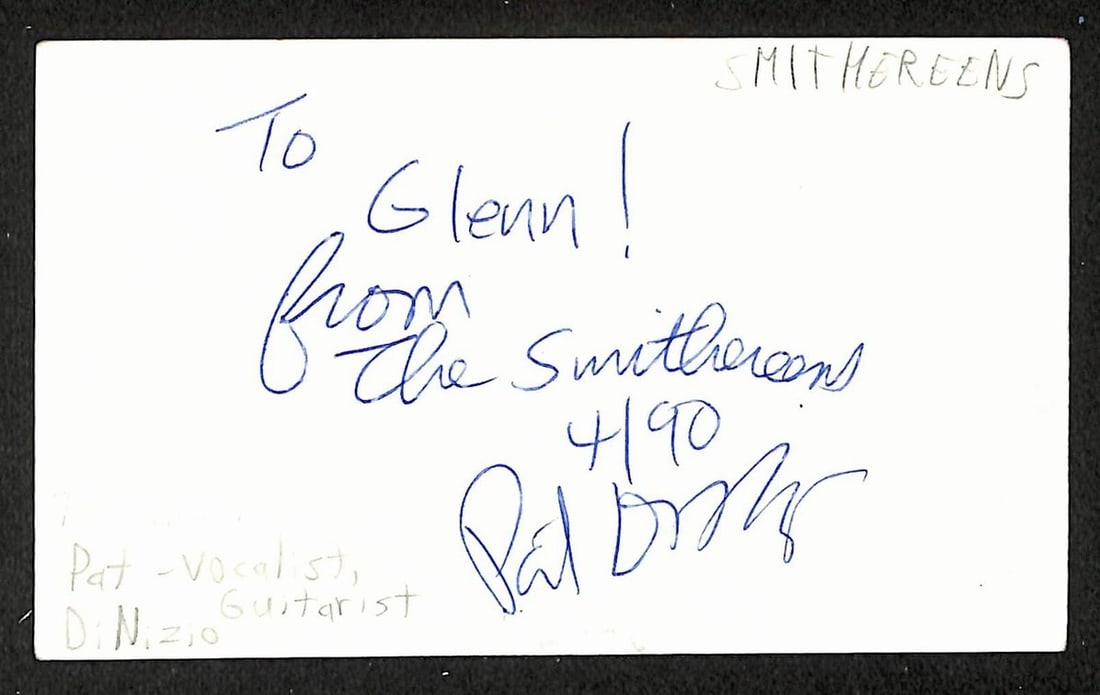 SMITHEREENS
To
Glenn!
from
The Smithereens
4/90
Pat
Pat - Vocalist,
Guitarist
DiNizio